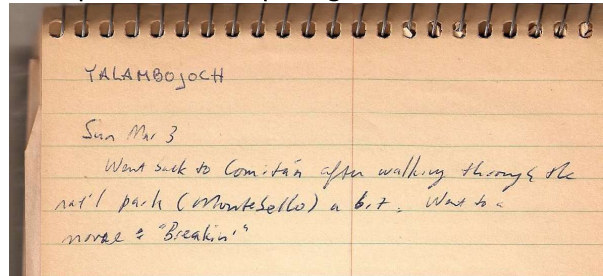 YALAMBOJOCH
Sun Mar 3
Went back to Comitán after walking through the
nat'l park (Montebello) a bit. Went to a
movie: "Breakin'"